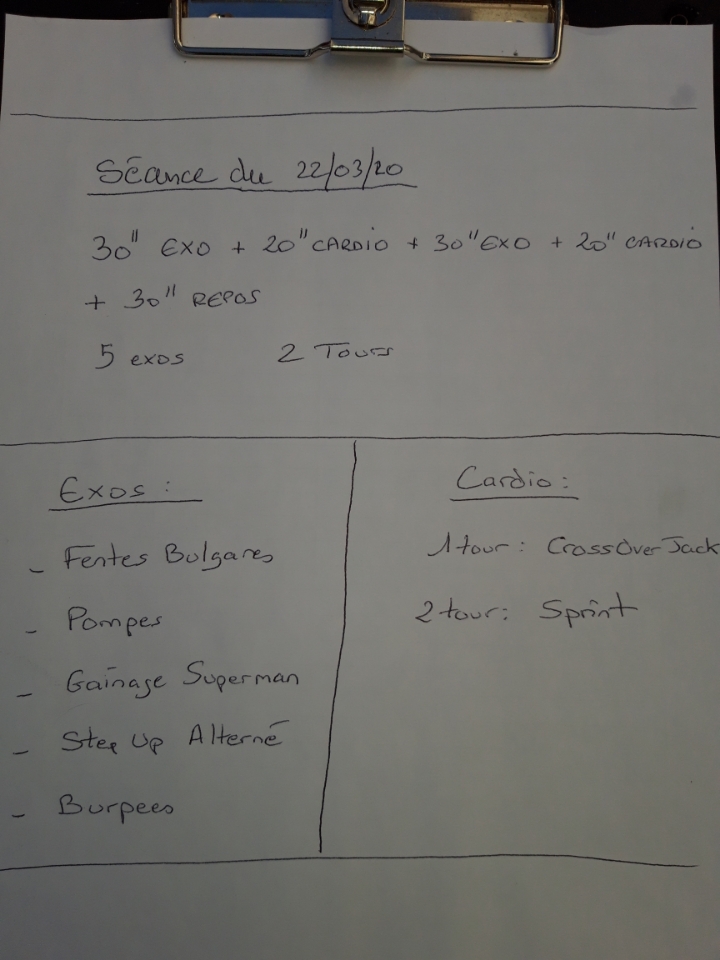 Séance du 22/03/20
30" EXO + 20" CARDIO + 30" EXO + 20" CARDIO
+ 30" REPOS
5 exos 2 Tours
Exos :
- Fentes Bulgares
- Pompes
- Gainage Superman
- Step Up Alterné
- Burpees
Cardio :
1 tour : CrossOver Jack
2 tour : Sprint